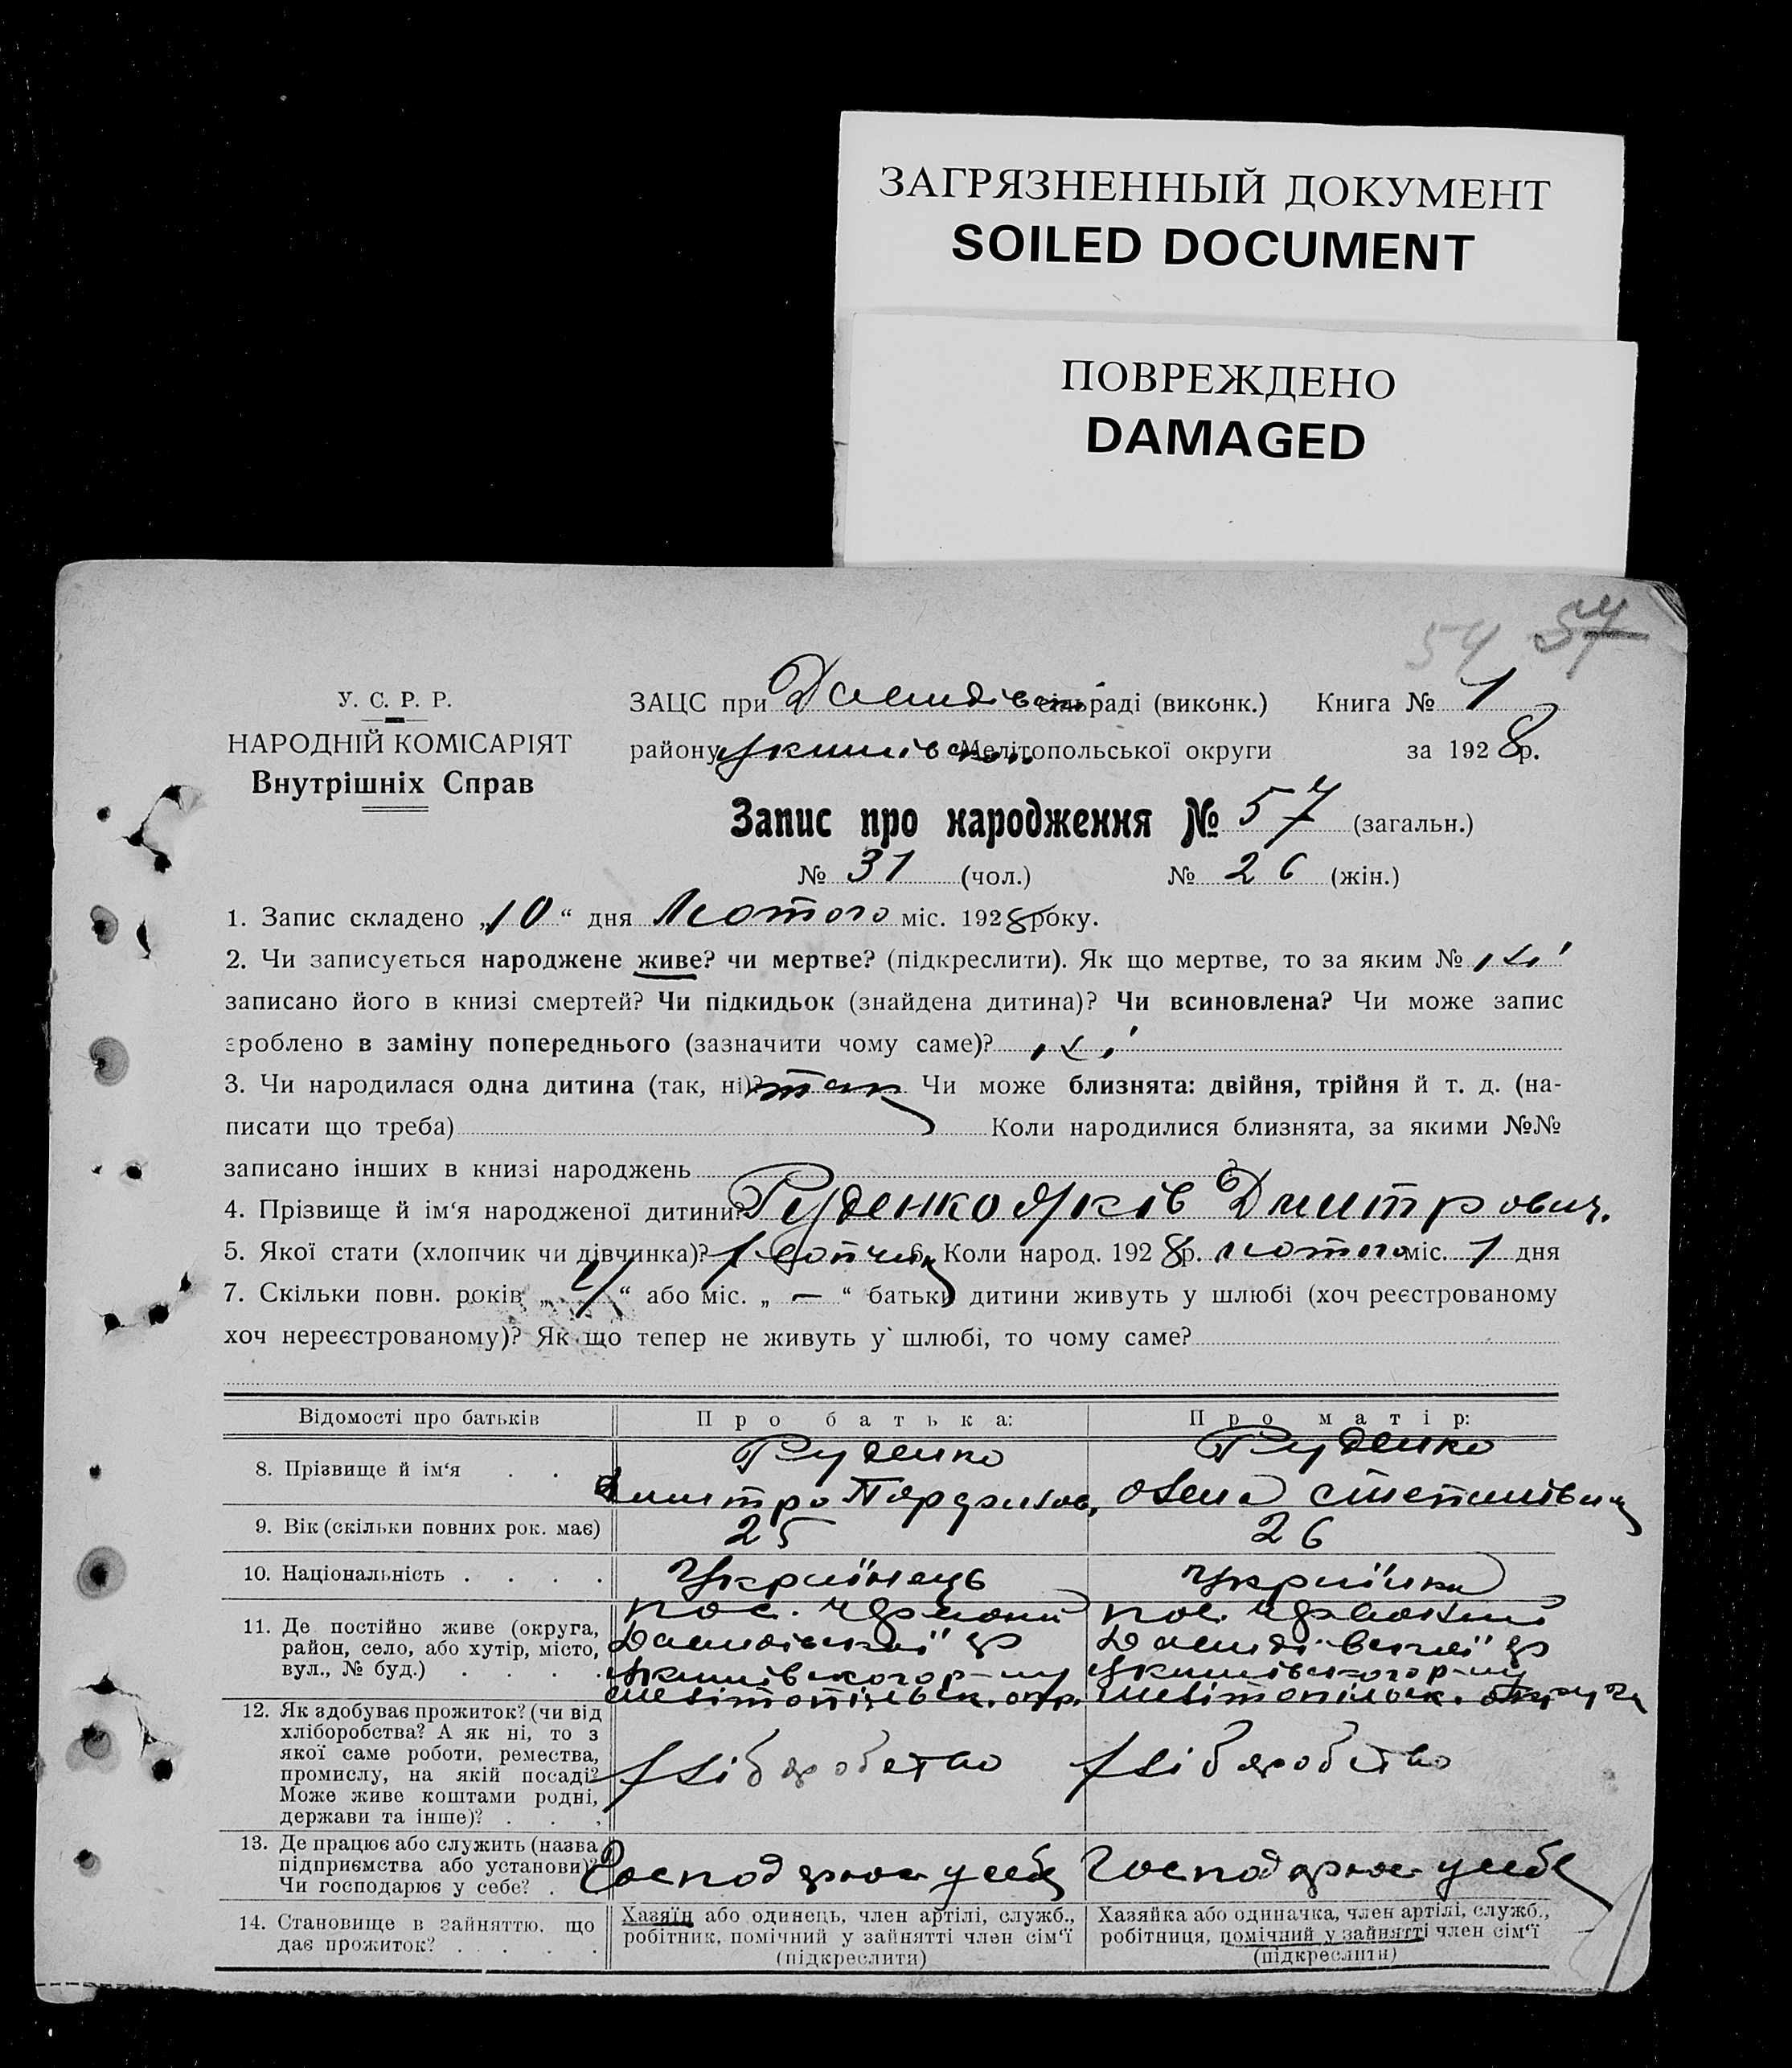 ЗАГРЯЗНЕННЫЙ ДОКУМЕНТ
SOILED DOCUMENT
ПОВРЕЖДЕНО
DAMAGED
54 57
У. С. Р. Р.
НАРОДНІЙ КОМІСАРІЯТ
Внутрішніх Справ
ЗАЦС при Давидівськ. сільраді (виконк.) Книга № 1
району Якимівськ. Мелітопольської округи за 1928 р.
Запис про народження № 57 (загальн.)
№ 31 (чол.) № 26 (жін.)
1. Запис складено „10“ дня Лютого міс. 1928 року.
2. Чи записується народжене живе? чи мертве? (підкреслити). Як що мертве, то за яким №
записано його в книзі смертей? Чи підкидьок (знайдена дитина)? Чи всиновлена? Чи може запис
зроблено в заміну попереднього (зазначити чому саме)?
3. Чи народилася одна дитина (так, ні)? так Чи може близнята: двійня, трійня й т. д. (на-
писати що треба) Коли народилися близнята, за якими №№
записано інших в книзі народжень ?
4. Прізвище й ім‘я народженої дитини? Руденко Яків Дмитрович.
5. Якої стати (хлопчик чи дівчинка)? хлопчик 6. Коли народ. 1928 р. лютого міс. 1 дня
7. Скільки повн. років „4“ або міс. „ — “ батьки дитини живуть у шлюбі (хоч реєстрованому
хоч нереєстрованому)? Як що тепер не живуть у шлюбі, то чому саме?
Відомості про батьків Про батька: Про матір:
8. Прізвище й ім‘я . . Руденко Руденко
Дмитро Олена Степанівна
9. Вік (скільки повних рок. має) 25 26
10. Національність . . . . Українець Українка
11. Де постійно живе (округа,
район, село, або хутір, місто,
вул., № буд.) . . . .
Давидівської с/р Давидівської с/р
Якимівського р-ну Якимівського р-ну
Мелітопільськ. окр. Мелітопільськ. округи
12. Як здобуває прожиток? (чи від
хліборобства? А як ні, то з
якої саме роботи, ремества,
промислу, на якій посаді?
Може живе коштами родні,
держави та інше)? . . .
хліборобство хліборобство
13. Де працює або служить (назва
підприємства або установи)?
Чи господарює у себе? .
Господарює у себе Господарює у себе
14. Становище в зайняттю, що
дає прожиток? . . . . .
Хазяїн або одинець, член артілі, служб.,
робітник, помічний у зайнятті член сім‘ї
(підкреслити)
Хазяйка або одиначка, член артілі, служб.,
робітниця, помічний у зайнятті член сім‘ї
(підкреслити)